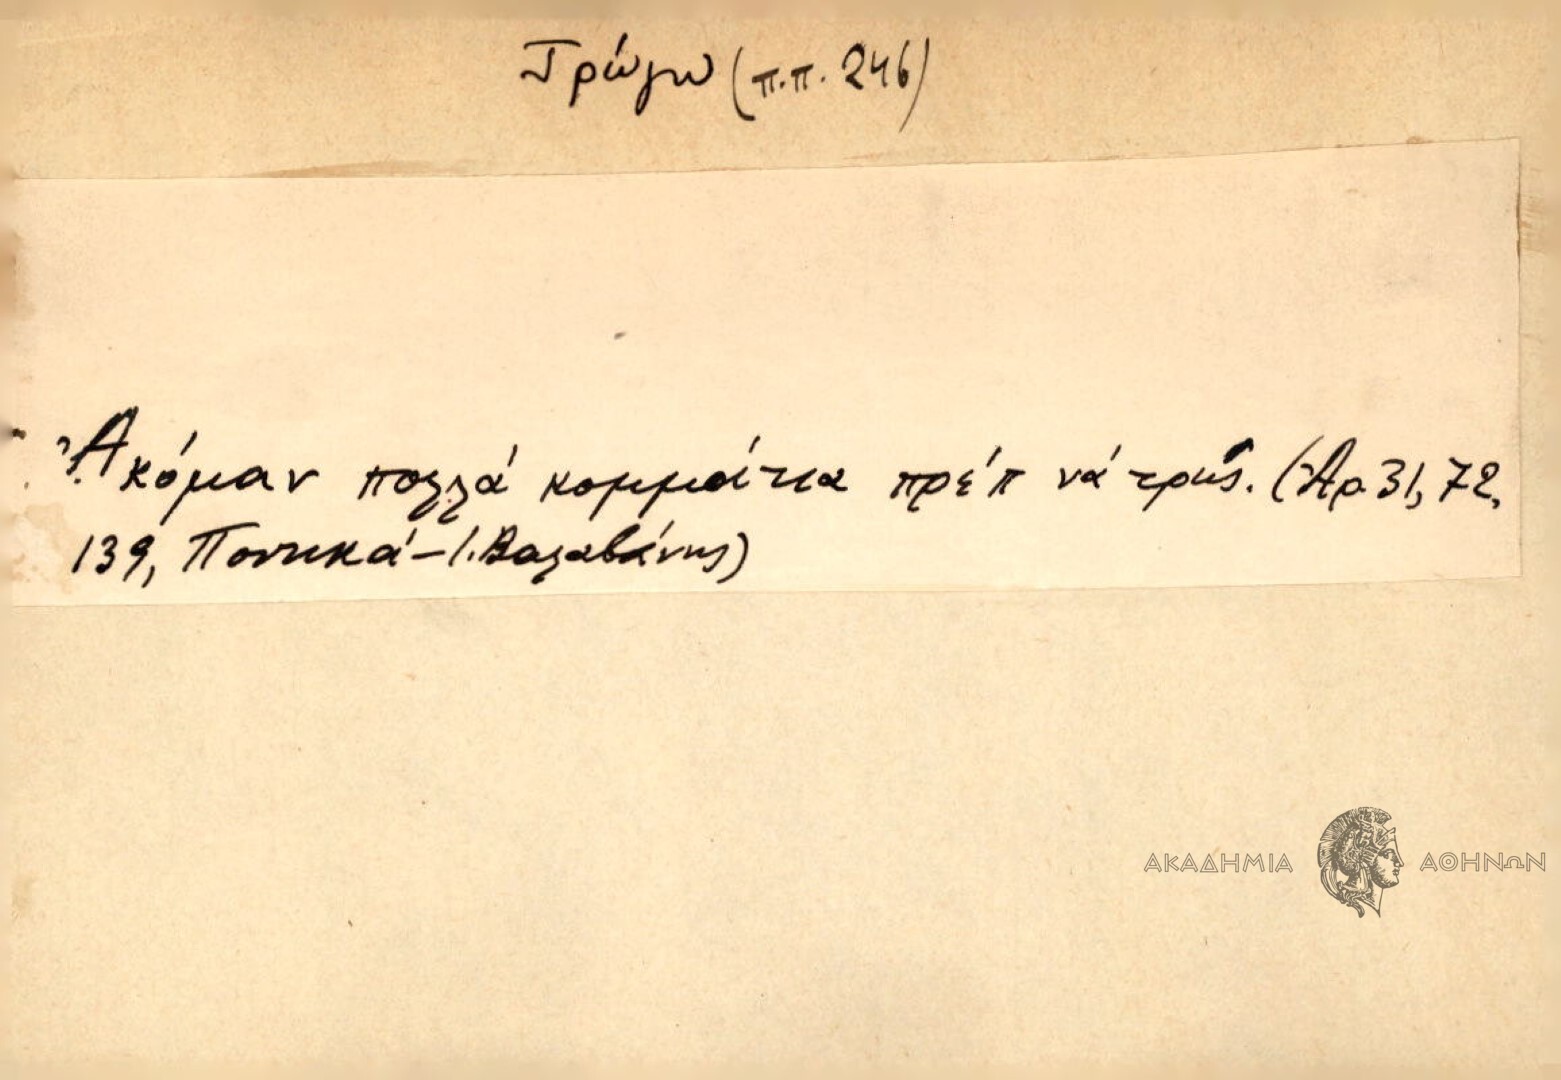 Τρώγω (π.π. 246)
Ἀκόμαν πολλά κομμάτια πρέπ νά τρῶς. (Ἀρ. 31, 72,
139, Ποντικά – Ι. Βαλαβάνης)
ΑΚΑΔΗΜΙΑ ΑΘΗΝΩΝ